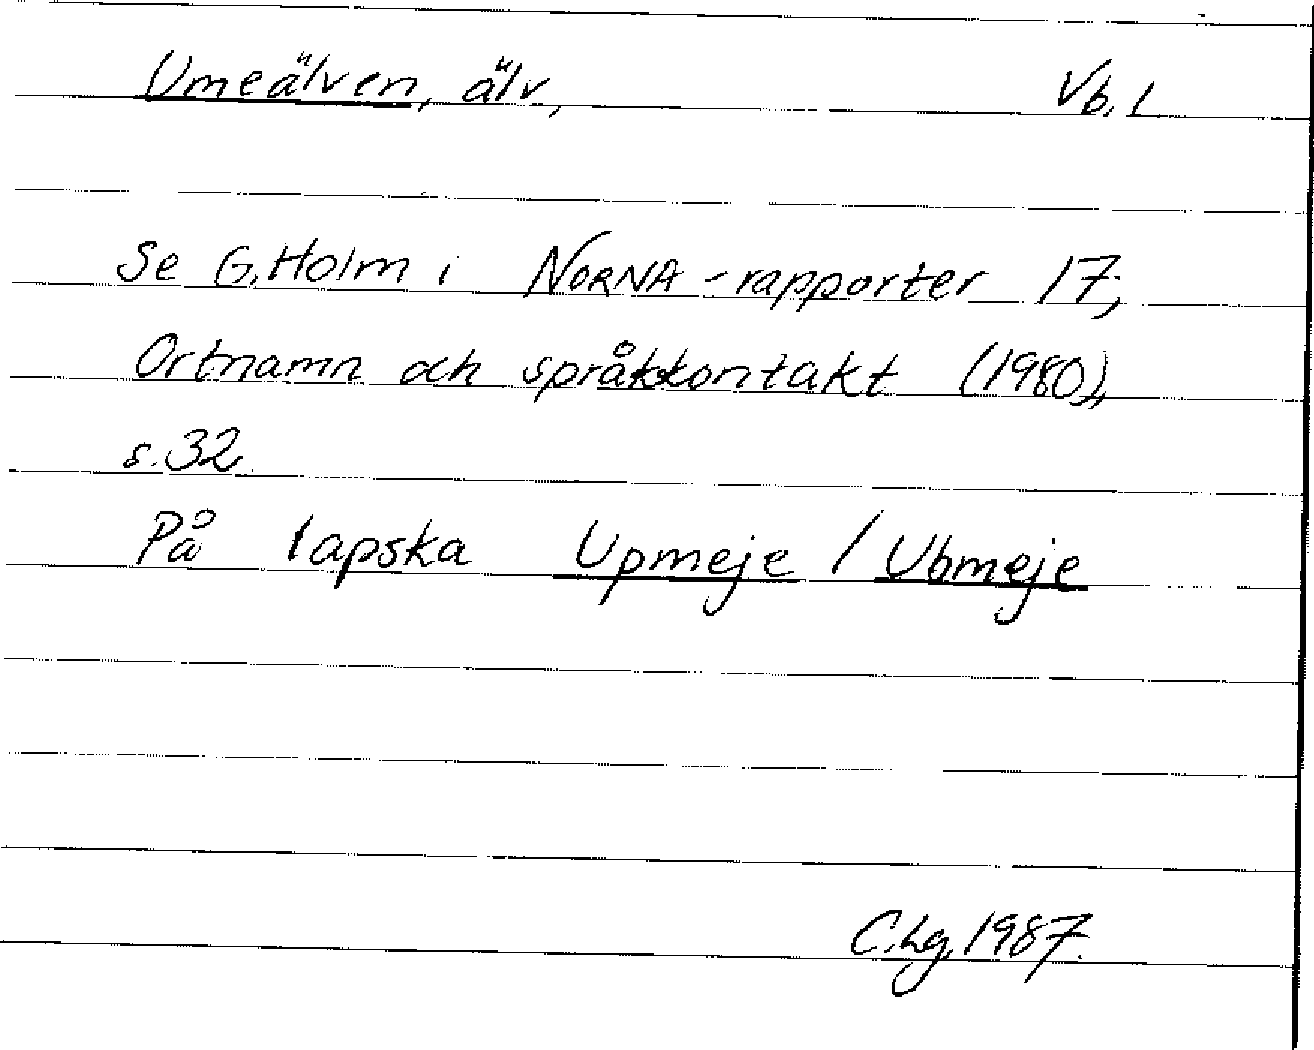 Umeälven, älv, Vb. L
Se G. Holm i NORNA-rapporter 17;
Ortnamn och språkkontakt (1980),
s. 32.
På lapska Upmeje / Ubmeje
C. Lg. 1987.